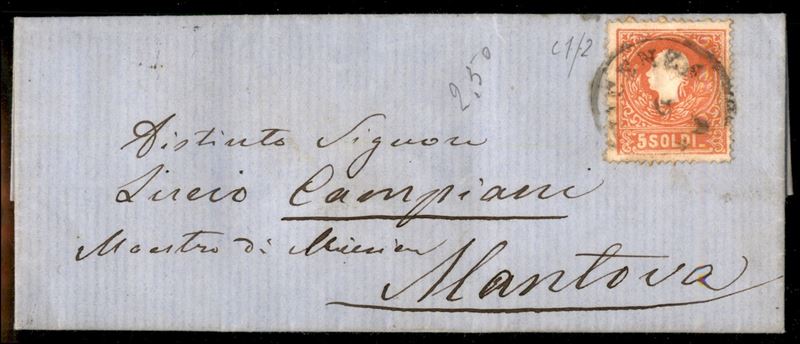 2,50
c1/2
VENEZIA
5 SOLDI
Distinto Signore
Lucio Campiani
Maestro di Musica
Mantova